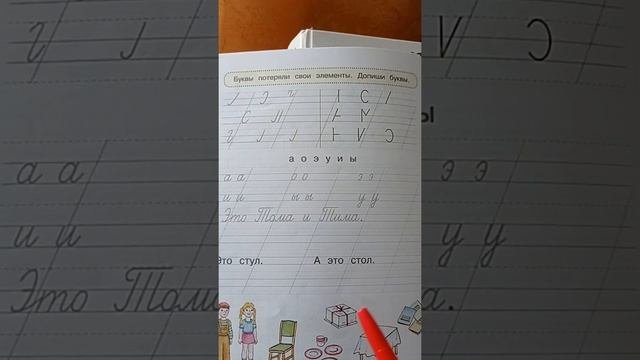 Буквы потеряли свои элементы. Допиши буквы.
а о э у и ы
а а о о э э
и и ы ы у у
Это Тома и Тима.
Это стул. А это стол.